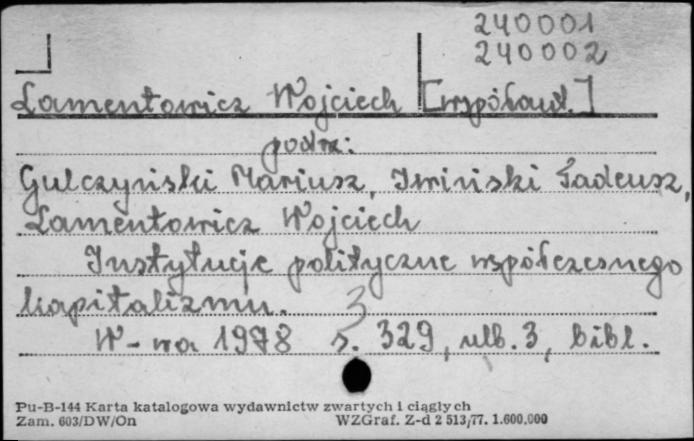 240001
240002
Lamentowicz Wojciech [współaut.]
podrz:
Gulczyński Mariusz, Iwiński Tadeusz,
Lamentowicz Wojciech
Instytucje polityczne współczesnego
kapitalizmu. 3
W-wa 1978 s. 329, nlb. 3, bibl.
Pu-B-144 Karta katalogowa wydawnictw zwartych i ciągłych
Zam. 603/DW/On WZGraf. Z-d 2 513/77. 1.600.000